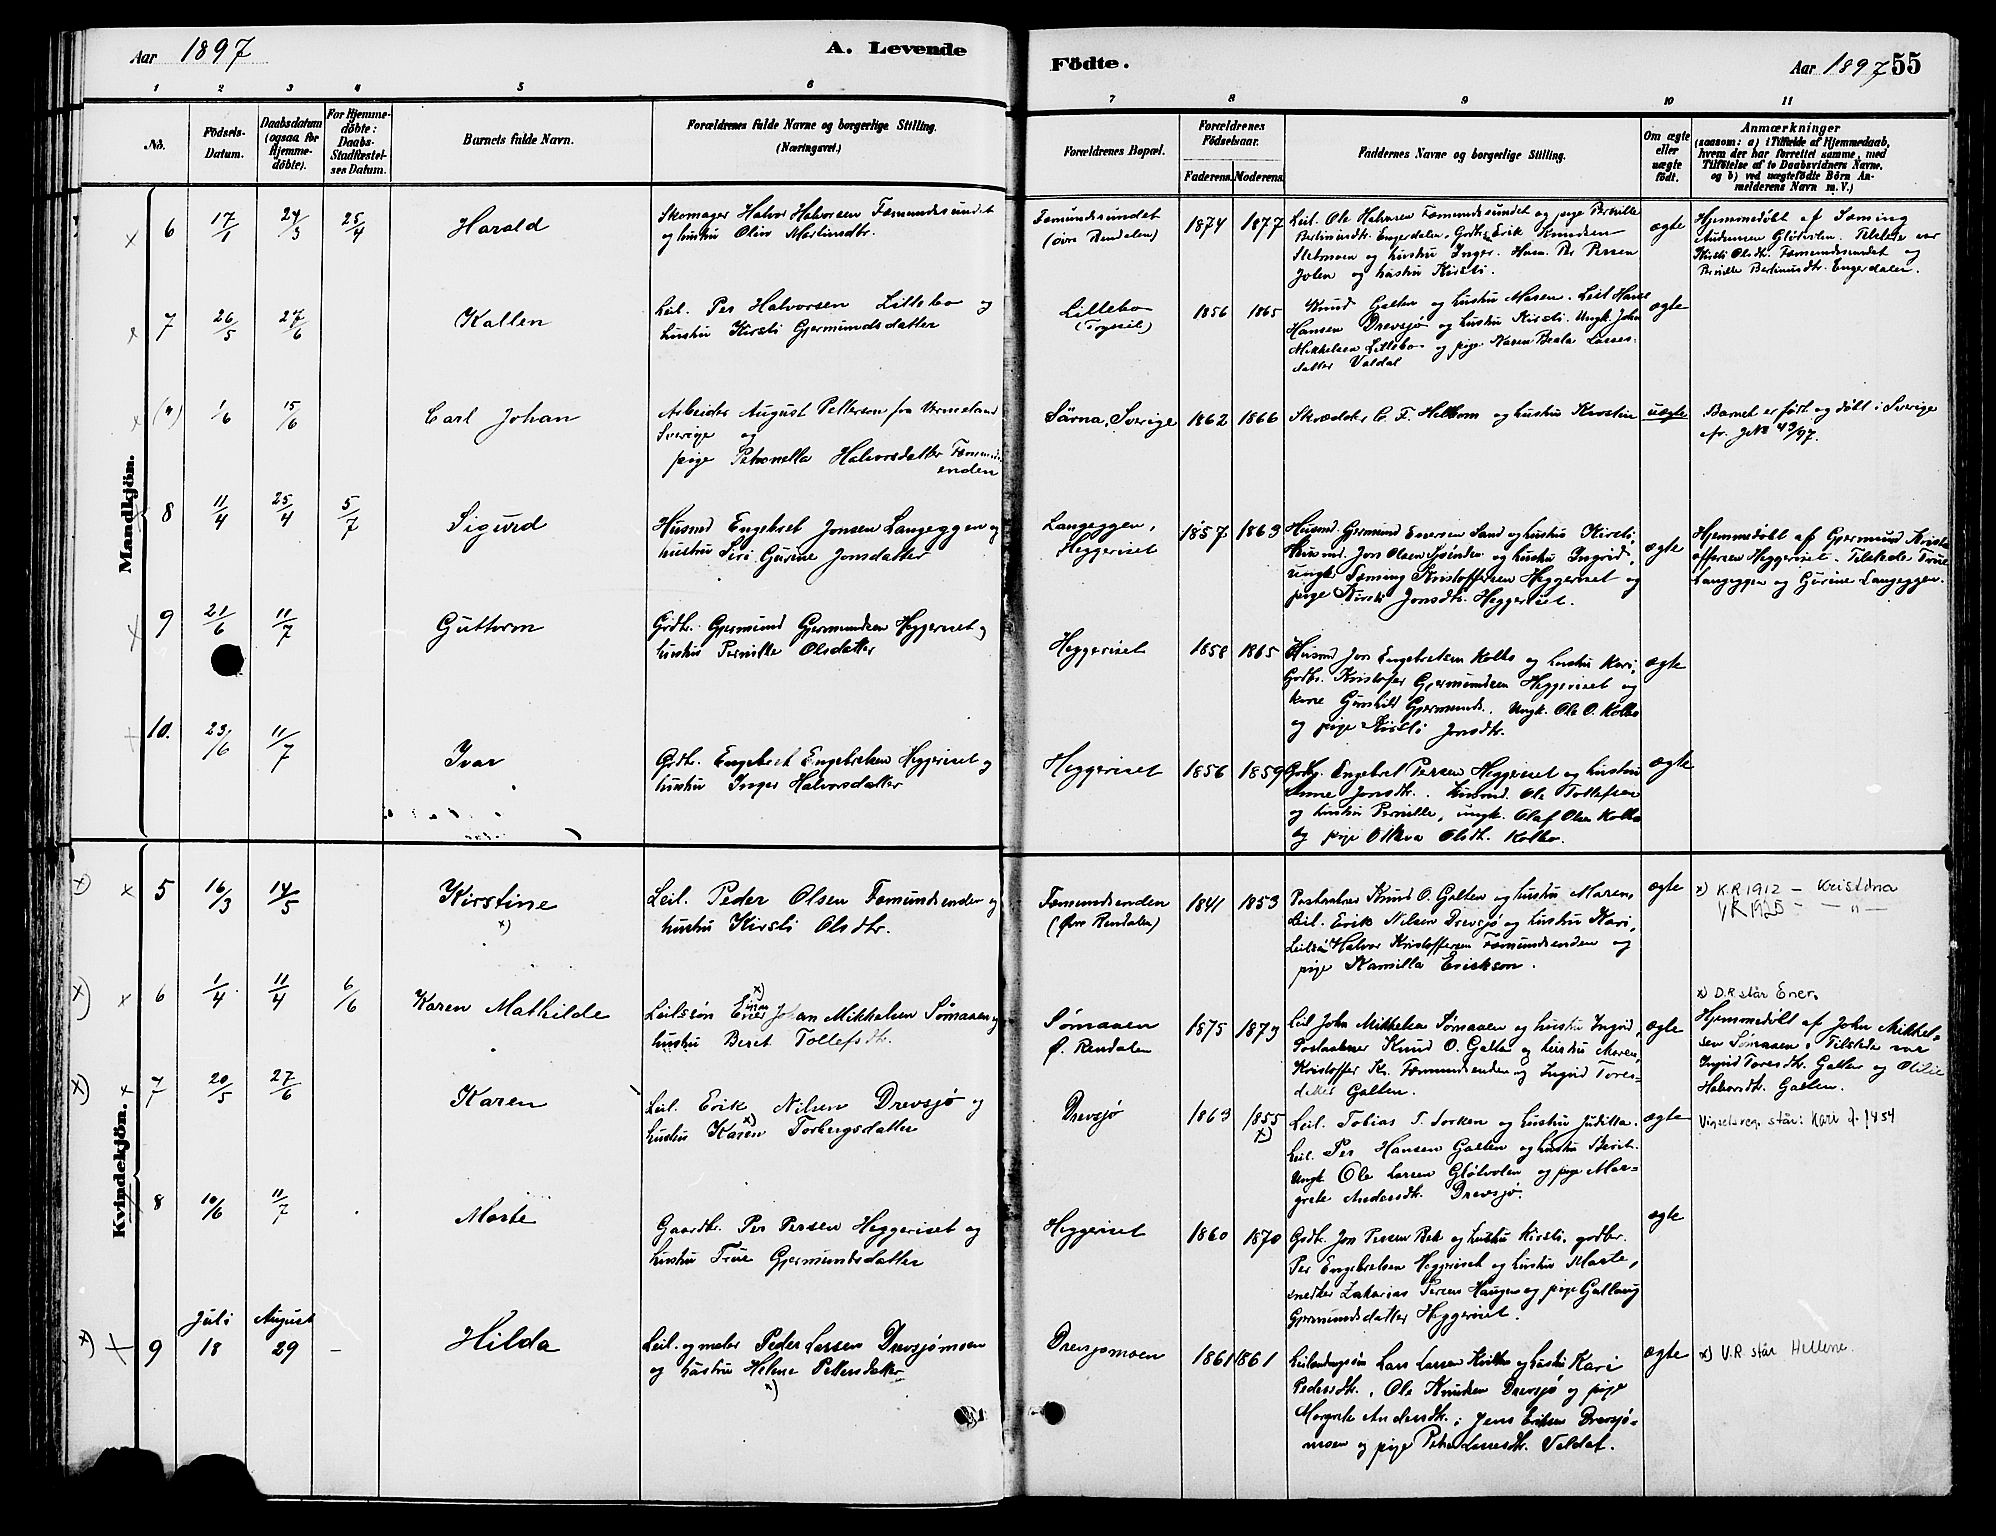 Aar 1897
A. Levende
Födte.
Aar 1897
55
1 2 3 4 5 6
7 8 9 10 11
No.
Födsels-
Datum.
Daabsdatum
(ogsaa for
Hjemme-
döbte).
For Hjemme-
döbte:
Daabs-
Stadfæstel-
ses Datum.
Barnets fulde Navn.
Forældrenes fulde Navne og borgerlige Stilling.
(Næringsvei.)
Forældrenes Bopæl.
Forældrenes
Födselsaar.
Faderens. Moderens.
Faddernes Navne og borgerlige Stilling.
Om ægte
eller
uægte
födt.
Anmærkninger
(saasom: a) i Tilfælde af Hjemmedaab,
hvem der har forrettet samme, med
Tilföielse af to Daabsvidners Navne,
og b) ved uægtefödte Börn An-
melderens Navn m. V.)
Mandkjön.
6 17/1 24/3 25/4 Harald
Skomager Halvor Halvorsen Fæmundssundet
og hustru Oline Martinsdtr.
Fæmundssundet
(øvre Rendalen)
1874 1877
Leil. Ole Halvorsen Fæmundssundet og pige Pernille
Bertinusdtr. Engerdalen. Gdbr. Erik Knudsen
og hustru Inger. Husm. Per Persen
Jolen og hustru Kirsti.
ægte
Hjemmedöbt af Sæming
Audunsen Glötvolen. Tilstede var
Kirsti Olsdtr. Fæmundssundet og
Pernille Bertinusdtr. Engerdalen.
7 26/5 27/6 Kallen
Leil. Per Halvorsen Lillebo og
hustru Kirsti Gjermundsdatter
Lillebo
(Trysil)
1856 1865
Knud Galten og hustru Maren. Leil. Hans
Hansen Drevsjø og hustru Kirsti. Ungk. John
Mikkelsen Lillebo og pige Karen Beala Lasses-
datter Valdal
ægte
(") 1/6 15/6 Carl Johan
Arbeider August Petterson fra Vermeland
Sverige og
pige Petronella Halvorsdatter Fæmunds-
enden
Särna, Sverige
1862 1866
Skrædder C. F. Hellbom og hustru Kirstine
uægte
Barnet er født og döbt i Sverige
cfr. JNo 43/97.
8 11/4 25/4 5/7 Sigurd
Husmd Engebret Jonsen Langeggen og
hustru Siri Gurine Jonsdatter
Langeggen,
Heggeriset
1857 1863
Husmd. Gjermund Enersen Sand og hustru Kirsti,
Husmd. Jon Olsen og hustru Ingrid,
Ungk. Sæming Kristoffersen Heggeriset og
pige Kirsti Jonsdtr. Heggeriset.
ægte
Hjemmedöbt af Gjermund Krist-
offersen Heggeriset. Tilstede True
Langeggen og Gurine Langeggen.
9 21/6 11/7 Guttorm
Grdbr. Gjermund Gjermundsen Heggeriset og
hustru Pernille Olsdatter
Heggeriset
1858 1865
Husmd Jon Engebretsen Kolbo og hustru Kari,
Grdbr. Kristofer Gjermundsen Heggeriset og
kone Gunhild Gjermunds. Ungk. Ole O. Kolbo
og pige Kirsti Jonsdtr.
ægte
10. 23/6 11/7 Ivar
Grdbr. Engebret Engebretsen Heggeriset og
hustru Inger Halvorsdatter
Heggeriset
1856 1859
Grdbr. Engebret Persen Heggeriset og hustru
Anne Jonsdtr. Husmd. Ole Tollefsen
og hustru Pernille, ungk. Olaf Olsen Kolbo
og pige Oline Olsdtr. Kolbo.
ægte
Kvindekjön.
x) 5 16/3 14/5 Kirstine x)
Leil. Peder Olsen Fæmundsenden og
hustru Kirsti Olsdtr.
Fæmundsenden
(Øvre Rendalen)
1841 1853
Postaabner Knud O. Galten og hustru Maren,
Leil. Erik Nilsen Drevsjø og hustru Kari,
Leilsön Halvor Kristoffersen Fæmundsenden og
pige Kamilla Erickson.
ægte
x) K.R 1912 – Kristina
VR 1925 – – " –
x) 6 1/4 11/4 6/6 Karen Mathilde
Leilssøn Ener x) Johan Mikkelsen Sømaaen og
hustru Beret Tollefsdtr.
Sømaaen
Ø. Rendalen
1875 1873
Leil John Mikkelsen Sømaaen og hustru Ingrid,
Postaabner Knud O. Galten og hustru Maren,
Kristoffer Kr. Fæmundsenden og Ingrid Tores-
datter Galten.
ægte
x) D.R står Ener.
Hjemmedöbt af John Mikkel-
sen Sømaaen. Tilstede var
Ingrid Toresdtr. Galten og Otilie
Halvorsdtr. Galten.
x) 7 20/5 27/6 Karen
Leil. Erik Nilsen Drevsjø og
hustru Karen x) Torbergsdatter
Drevsjø
1863 1855 x)
Leil. Tobias T. Sorken og hustru Juditha.
Leil. Per Hansen Galten og hustru Berit.
Ungk Ole Larsen Glötvolen og pige Mar-
grete Andersdtr. Drevsjø.
ægte
Vigselsreg. står: Kari f. 1854
8 10/6 11/7 Marte
Gaardbr. Per Persen Heggeriset og
hustru True Gjermundsdatter
Heggeriset
1860 1870
Grdbr. Jon Persen Bek og hustru Kirsti, grdbr.
Per Engebretsen Heggeriset og hustru Marte,
snedker Zakarias Persen Haugen og pige Gallaug
Gjermundsdatter Heggeriset.
ægte
x) 9 Juli 18 August 29 – Hilda
Leil. og maler Peder Larsen Drevsjømoen
og hustru Helene Pettersdatter x)
Drevsjømoen
1861 1861
Leilændingsön Lars Larsen og hustru Kari
Pedersdtr., Ole Knudsen Drevsjø og pige
Margrete Andersdtr.; Jens Eriksen Drevsjø-
moen og pige Petra Larsdtr. Valdal.
ægte
x) V.R står Hellene.